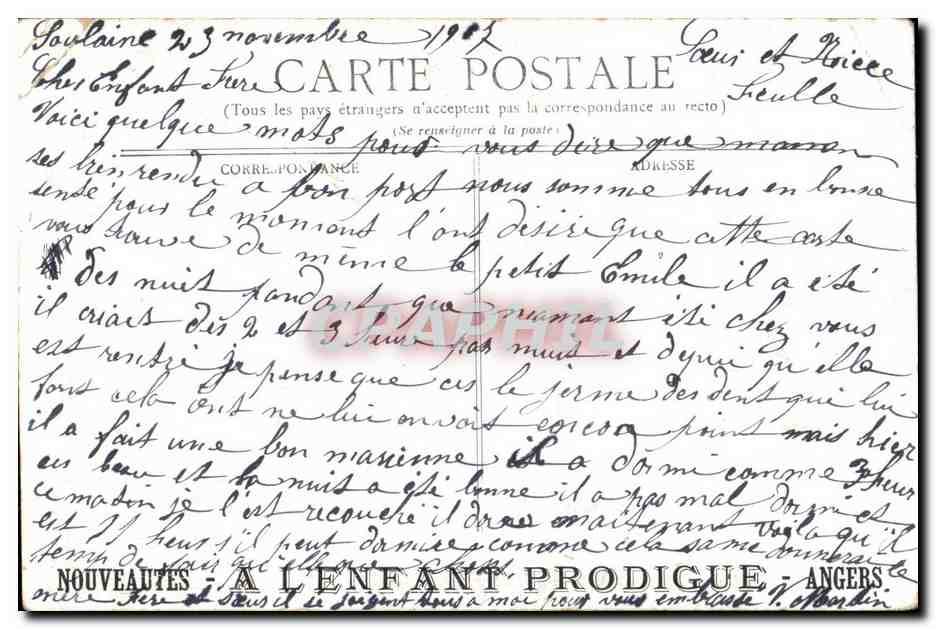 Soulaine 23 novembre 1907
Sœur et Nièce
Cher Enfant Frere
Feulle
CARTE POSTALE
(Tous les pays étrangers n'acceptent pas la correspondance au recto)
(Se renseigner à la poste)
Voici quelque mots pour vous dire que maman
CORRESPONDANCE
ADRESSE
ses bien rendu a bon port nous somme tous en bonne
senté pour le moment l'ont désire que cette carte
vous trouve de même le petit Emile il a été
des nuit pandant que mamant été chez vous
il criait des 2 et 3 heure par nuit et depui qu'elle
est rentré je panse que ces le jerme des dent qui lui
font cela ont ne lui en voit encore point mais hier
il a fait une bon marienne il a dormi comme 3 heur
ces beau et la nuit a été bonne il a pas mal dormi et
ce matin je l'est recouché il dore maitenant voila qu'il
est 11 heur s'il peut dormire comme cela sa me donnera le
temp de
NOUVEAUTÉS - A L'ENFANT PRODIGUE - ANGERS
mère frere et sœur il se joigent tous a moi pour vous embrasse V. Mardin
CPAPHIL